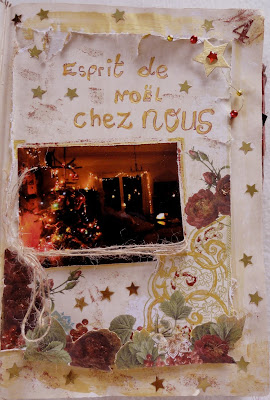 4
Esprit de
NOËL
chez NOUS